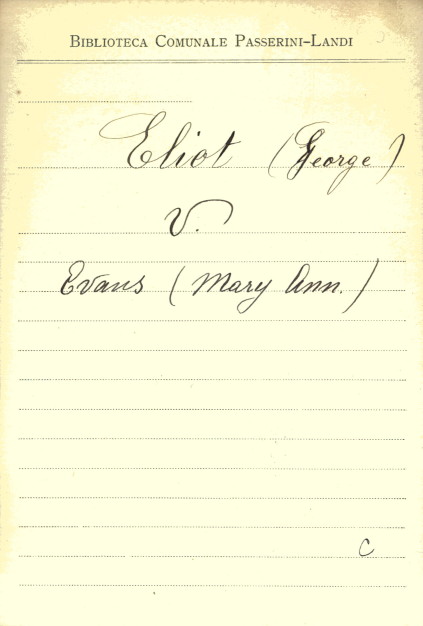 BIBLIOTECA COMUNALE PASSERINI-LANDI
Eliot (George)
V.
Evans (Mary Ann.)
C